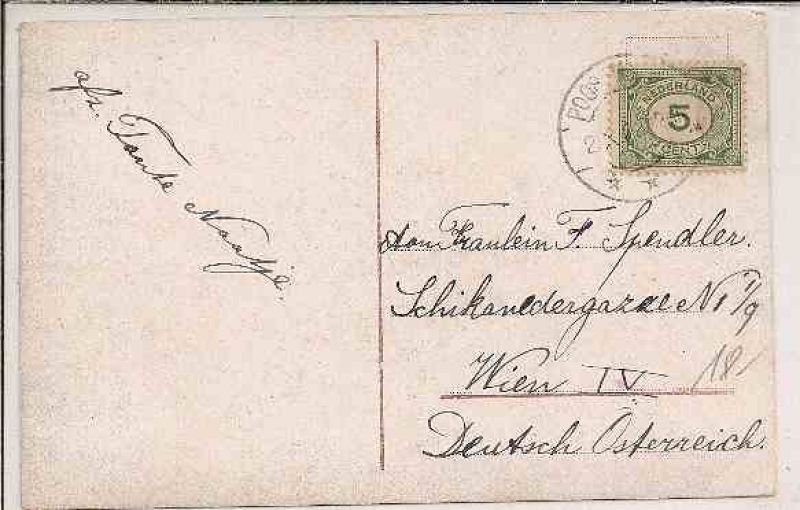 afz. Tante Naatje.
NEDERLAND
5
CENT
POO
2
Aan Fraulein F. Spendler.
Schikanedergazse No 1/9
Wien IV
18-
Deutsch Österreich.